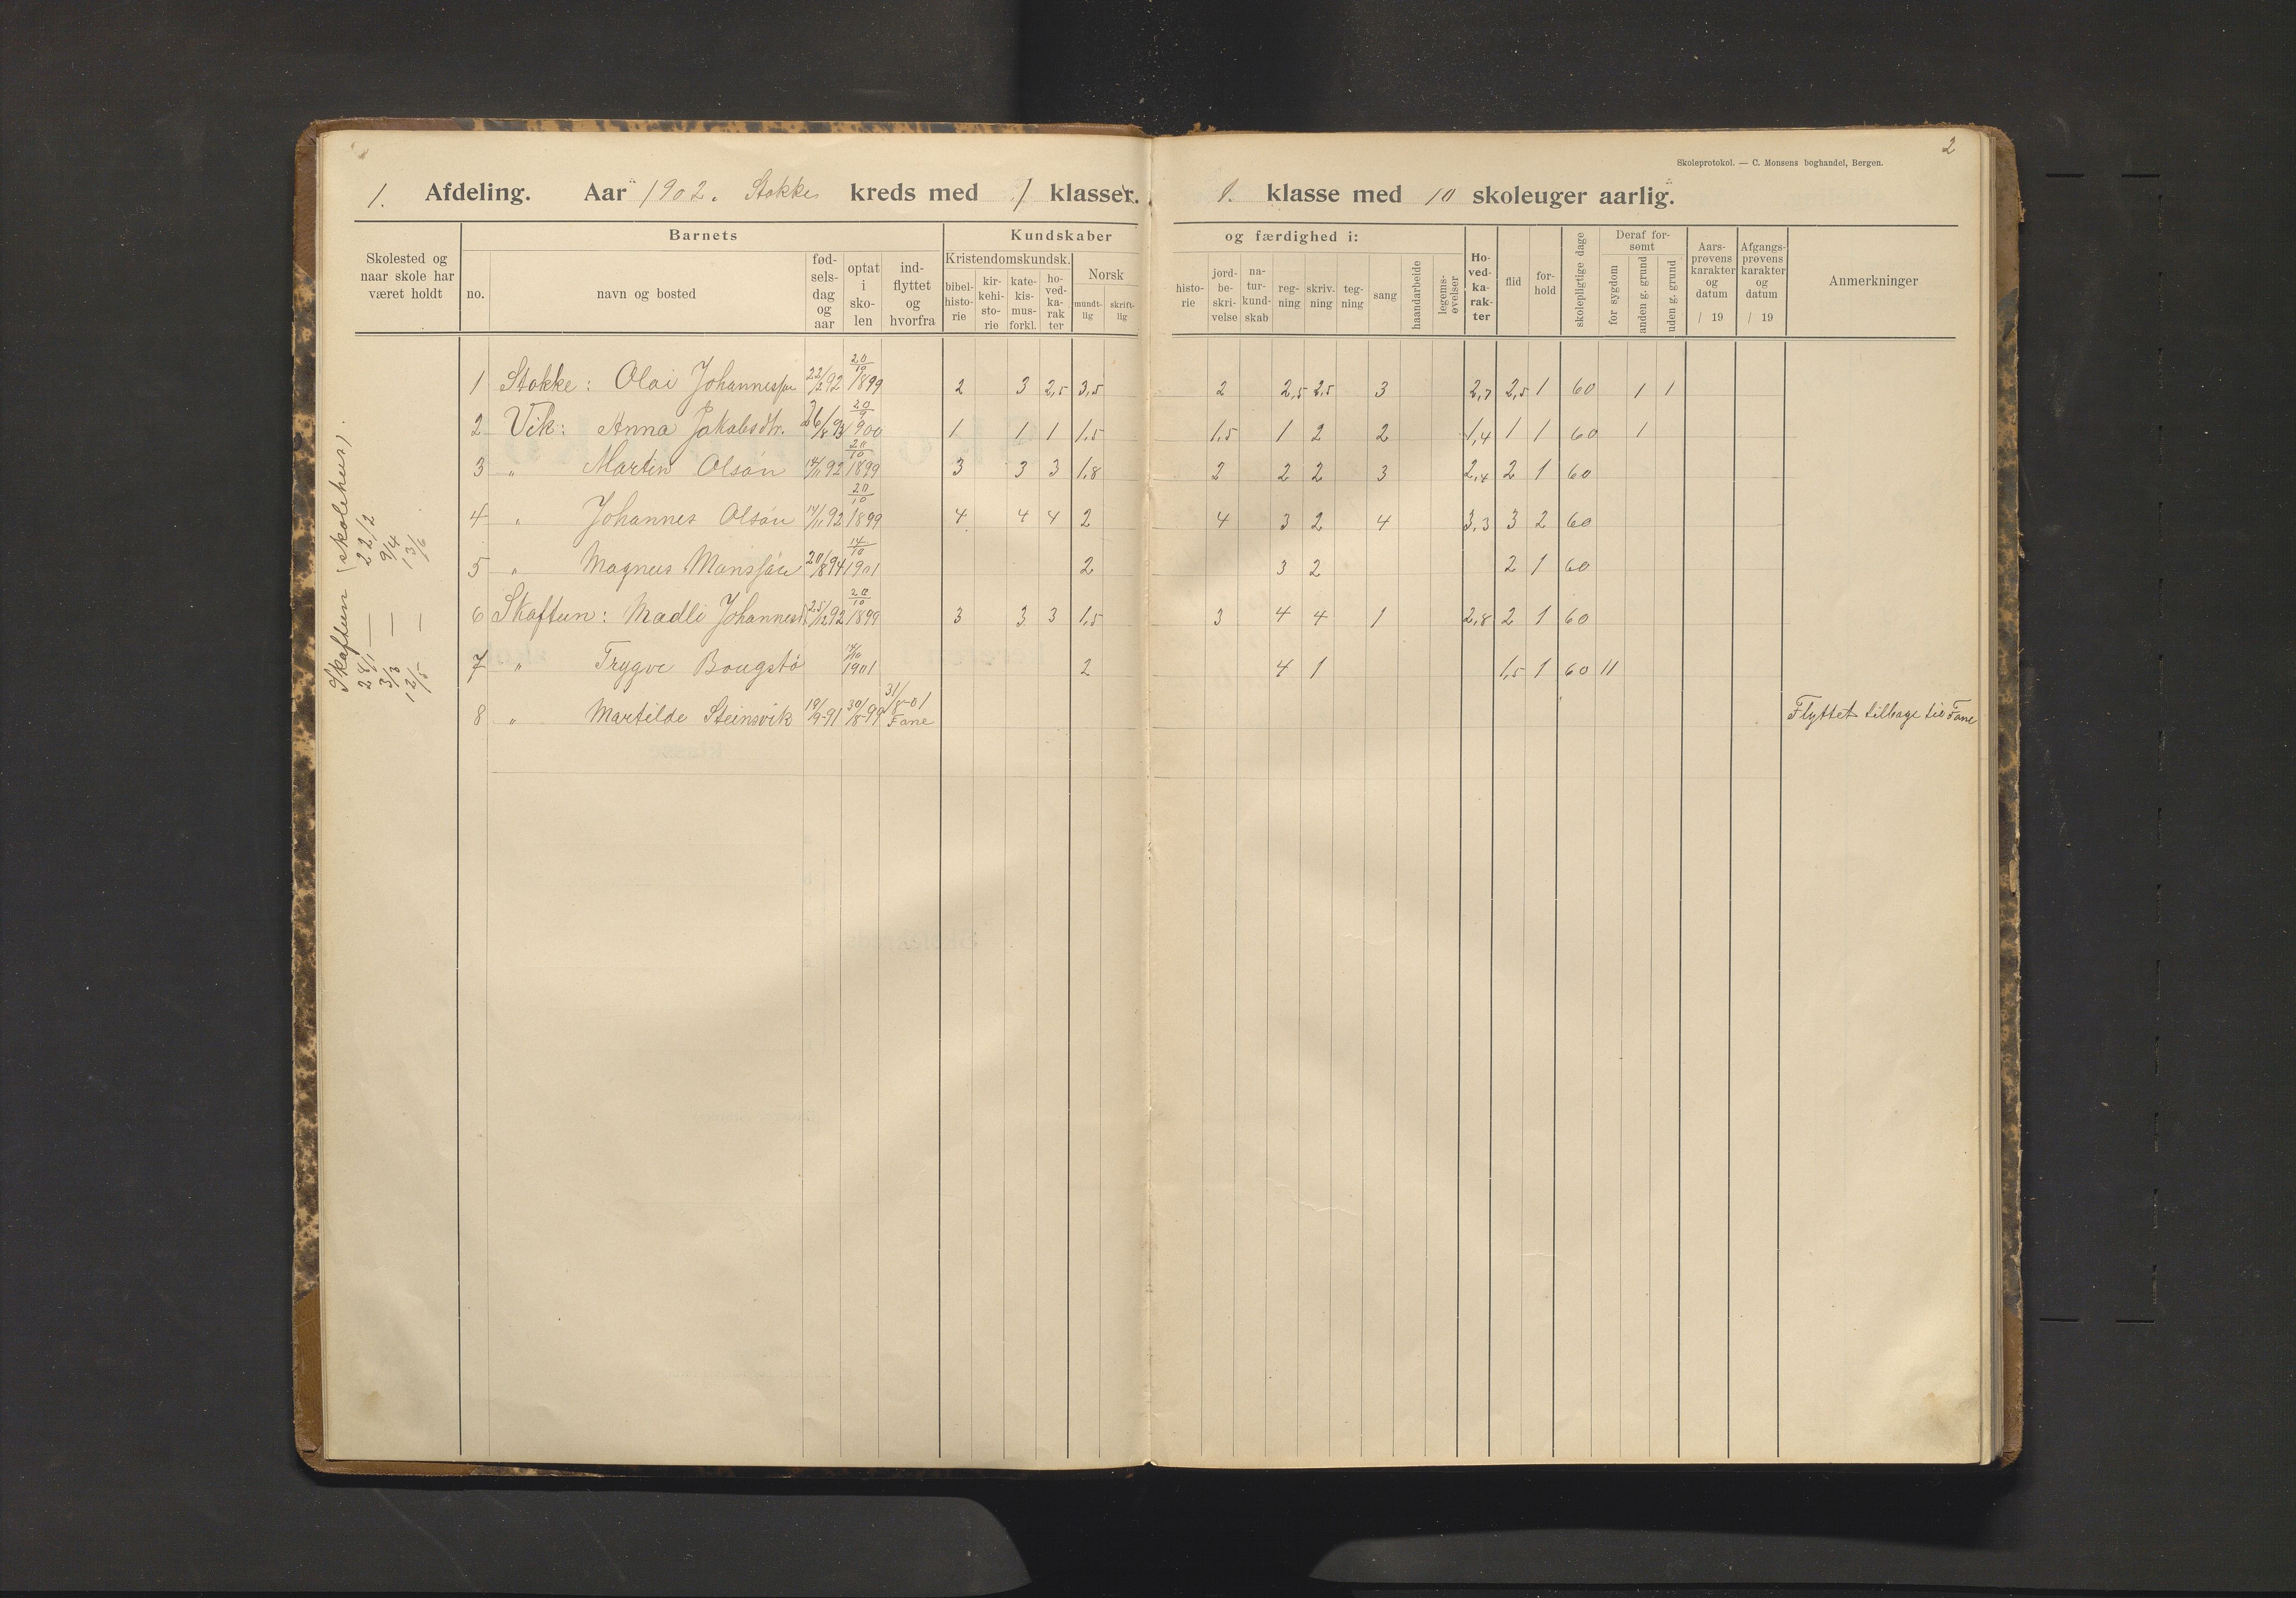 2
Skoleprotokol. — C. Monsens boghandel, Bergen.
1. Afdeling. Aar 1902. Stokke kreds med 1 klasser. 1. klasse med 10 skoleuger aarlig.
Skolested og naar skole har været holdt
Barnets
no.
navn og bosted
fødselsdag og aar
optat i skolen
indflyttet og hvorfra
Kundskaber og færdighed i:
Kristendomskundsk.
bibelhistorie
kirkehistorie
katekismusforkl.
hovedkarakter
Norsk
mundtlig
skriftlig
historie
jordbeskrivelse
naturkundskab
regning
skrivning
tegning
sang
haandarbeide
legemsøvelser
Hovedkarakter
flid
forhold
skolepligtige dage
Deraf forsømt
for sygdom
anden g. grund
uden g. grund
Aarsprøvens karakter og datum / 19
Afgangsprøvens karakter og datum / 19
Anmerkninger
Skaftun (skolehus).
28/1 — 22/2
3/3 — 9/4
12/5 — 13/6
1 Stokke: Olai Johannessøn 22/2 92 20/10 1899 2 3 2,5 3,5 2 2,5 2,5 3 2,7 2,5 1 60 1 1
2 Vik: Anna Jakobsdtr. 26/8 93 20/9 900 1 1 1 1,5 1,5 1 2 2 1,4 1 1 60 1
3 " Martin Olsøn 14/11 92 20/10 1899 3 3 3 1,8 2 2 2 3 2,4 2 1 60
4 " Johannes Olsøn 14/11 92 20/10 1899 4 4 4 2 4 3 2 4 3,3 3 2 60
5 " Magnus Monssøn 20/8 94 14/10 1901 2 3 2 2 1 60
6 Skaftun: Madli Johannesd. 25/12 92 20/10 1899 3 3 3 1,5 3 4 4 1 2,8 2 1 60
7 " Trygve Bougstø 14/10 1901 2 4 1 1,5 1 60 11
8 " Martilde Steinsvik 19/9-91 30/8-99 31/8-01 Fane Flyttet tilbage til Fane